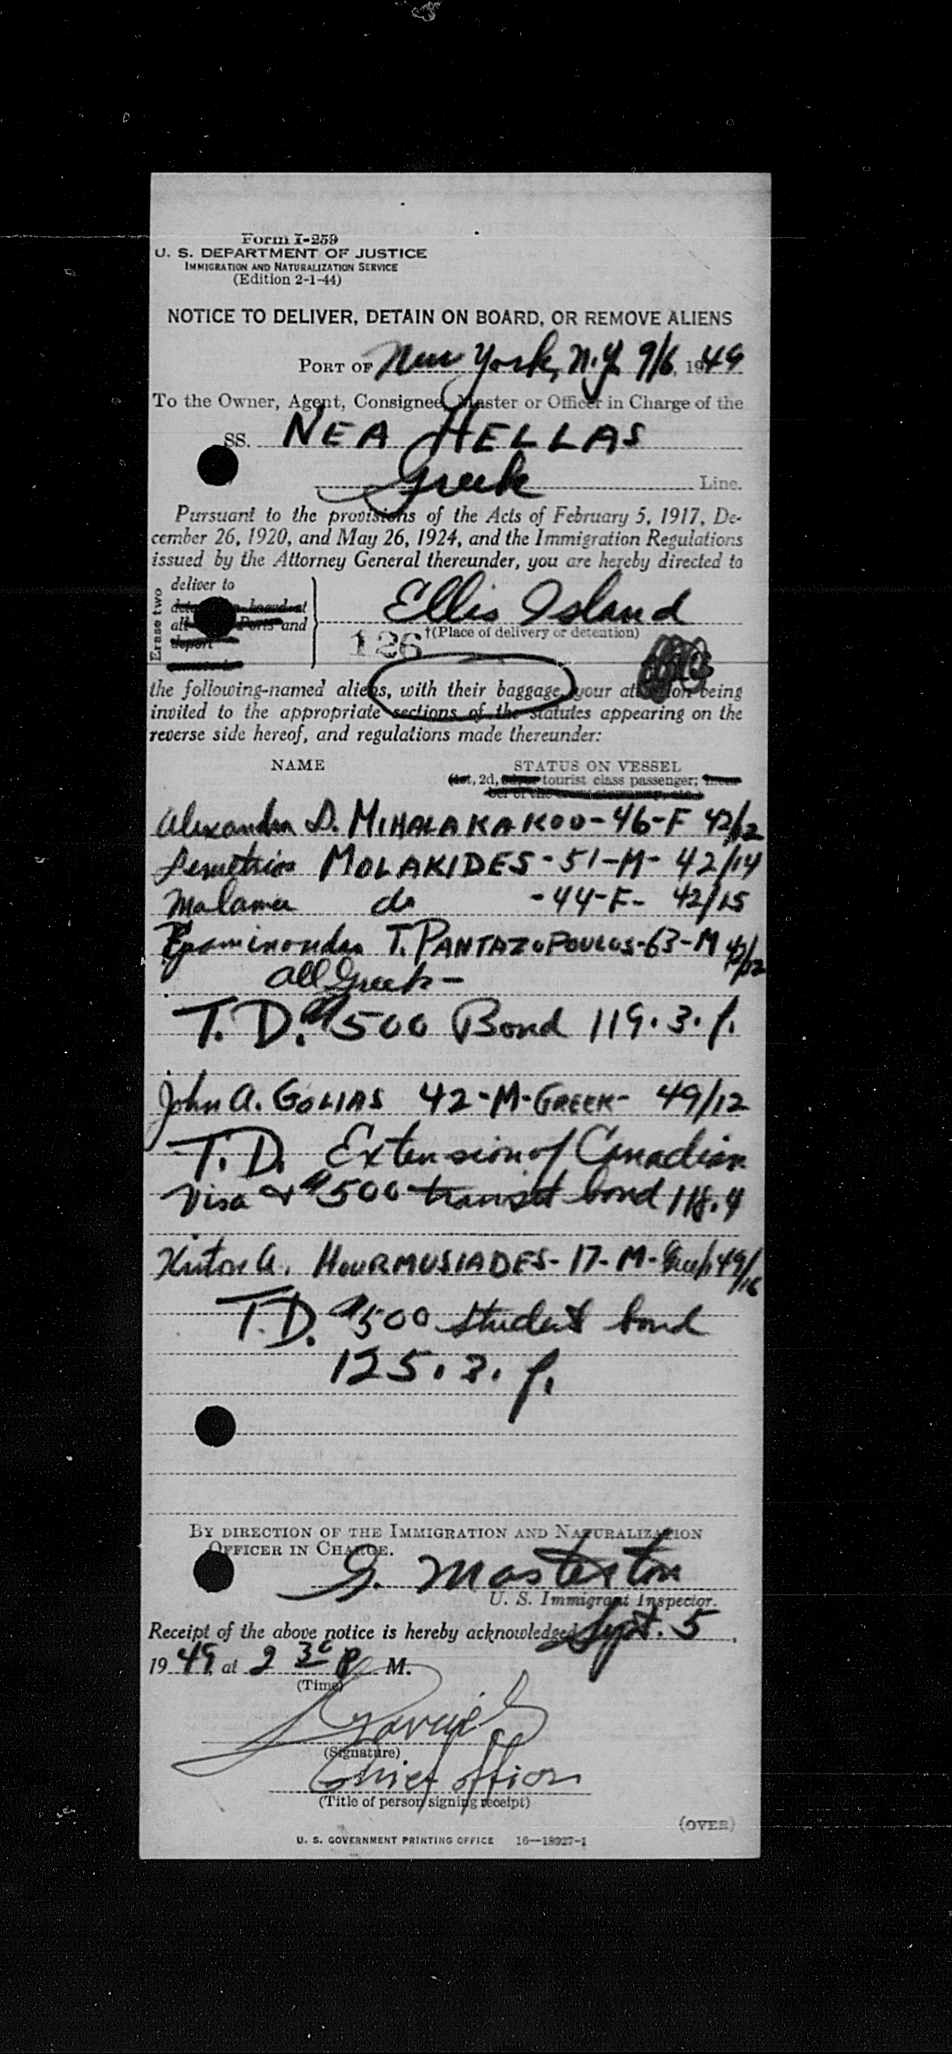 Form I-259
U. S. DEPARTMENT OF JUSTICE
IMMIGRATION AND NATURALIZATION SERVICE
(Edition 2-1-44)
NOTICE TO DELIVER, DETAIN ON BOARD, OR REMOVE ALIENS
PORT OF New York, N.Y. 9/6, 1949
To the Owner, Agent, Consignee, Master or Officer in Charge of the
SS. NEA HELLAS
Greek Line.
Pursuant to the provisions of the Acts of February 5, 1917, De-
cember 26, 1920, and May 26, 1924, and the Immigration Regulations
issued by the Attorney General thereunder, you are hereby directed to
Erase two
deliver to
on board at
Ports and
deport
Ellis Island
126 †(Place of delivery or detention)
the following-named aliens, with their baggage, your attention being
invited to the appropriate sections of the statutes appearing on the
reverse side hereof, and regulations made thereunder:
NAME STATUS ON VESSEL
(1st, 2d, tourist class passenger;
Alexandra D. MIHALAKAKOO-46-F 42/12
Demetrios MOLAKIDES-51-M- 42/14
Malama do -44-F- 42/15
Epaminondas T. PANTAZOPOULOS-63-M 42/22
all Greek-
T. D. $500 Bond 119.3.f.
John A. GOLIAS 42-M-GREEK- 49/12
T. D. Extension of Canadian
Visa & $500 transit bond 118.4
A. HOURMUSIADES-17-M-Greek 49/16
T.D. $500 student bond
125.3.f.
BY DIRECTION OF THE IMMIGRATION AND NATURALIZATION
OFFICER IN CHARGE.
G. Masterton
U. S. Immigrant Inspector.
Receipt of the above notice is hereby acknowledged Sept. 5,
1949, at 2 30 P M.
(Time)
(Signature)
Chief officer
(Title of person signing receipt)
(OVER)
U. S. GOVERNMENT PRINTING OFFICE 16—18927-1